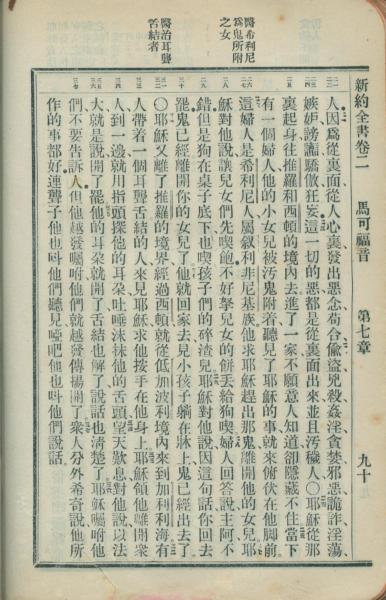 新約全書卷二　馬可福音　第七章　九十五
醫希利尼
爲鬼所附
之女
醫治耳聾
舌結者
人因爲從裏面從人心裏發出惡念苟合偷盜兇殺姦淫貪婪邪惡詭詐淫蕩
嫉妬謗讟驕傲狂妄這一切的惡都是從裏面出來並且污穢人〇耶穌從那
裏起身往推羅和西頓的境內去進了一家不願意人知道卻隱藏不住當下
有一個婦人他的小女兒被汚鬼附着聽見了耶穌的事就來俯伏在他脚前
這婦人是希利尼人屬叙利非尼基族他求耶穌趕出那鬼離開他的女兒耶
穌對他說讓兒女們先喫飽不好拏兒女的餅丟給狗喫婦人回答說主阿不
錯但是狗在桌子底下也喫孩子們的碎渣兒耶穌對他說因這句話你回去
罷鬼已經離開你的女兒了他就回家去見小孩子躺在牀上鬼已經出去了
〇耶穌又離了推羅的境界經過西頓就從低加波利境內來到加利利海有
人帶着一個耳聾舌結的人來見耶穌求他按手在他身上耶穌領他離開衆
人到一邊就用指頭探他的耳朶吐唾沫抹他的舌頭望天歎息對他說以法
大就是說開了罷他的耳朶就開了舌結也解了說話也清楚了耶穌囑咐他
們不要告訴人但他越發囑咐他們就越發傳揚開了衆人分外希奇說他所
作的事都好連聾子他也呌他們聽見啞吧他也呌他們說話